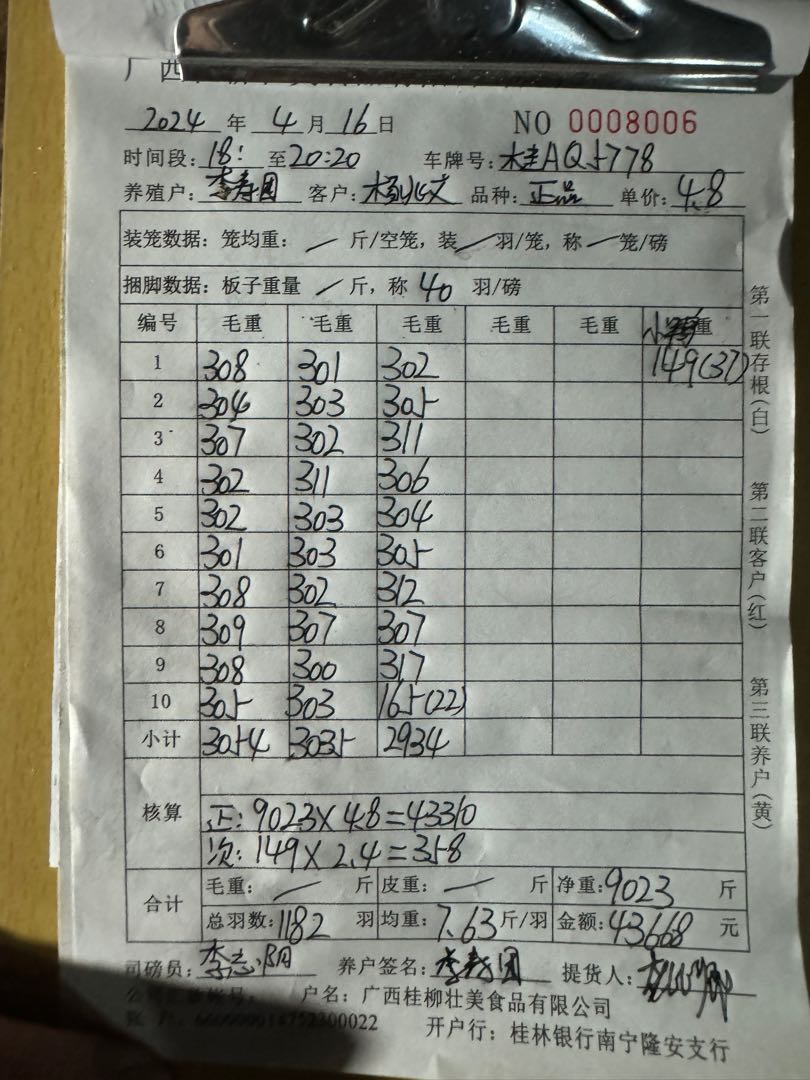 广西
2024 年 4 月 16 日 NO 0008006
时间段: 18: 至 20:20 车牌号: 桂AQ5778
养殖户: 李寿团 客户: 品种: 正品 单价: 4.8
装笼数据: 笼均重: / 斤/空笼, 装 / 羽/笼, 称 / 笼/磅
捆脚数据: 板子重量 / 斤, 称 40 羽/磅
编号 毛重 毛重 毛重 毛重 毛重 重
1 308 301 302 149(37)
2 304 303 305
3 307 302 311
4 302 311 306
5 302 303 304
6 301 303 305
7 308 302 312
8 309 307 307
9 308 300 317
10 305 303 165(22)
小计 3054 3035 2934
核算
正: 9023×4.8=43310
次: 149×2.4=358
合计 毛重: / 斤 皮重: / 斤 净重: 9023 斤
总羽数: 1182 羽 均重: 7.63 斤/羽 金额: 43668 元
司磅员: 李志阴 养户签名: 李寿团 提货人:
户名: 广西桂柳壮美食品有限公司
开户行: 桂林银行南宁隆安支行
第一联存根(白)
第二联客户(红)
第三联养户(黄)